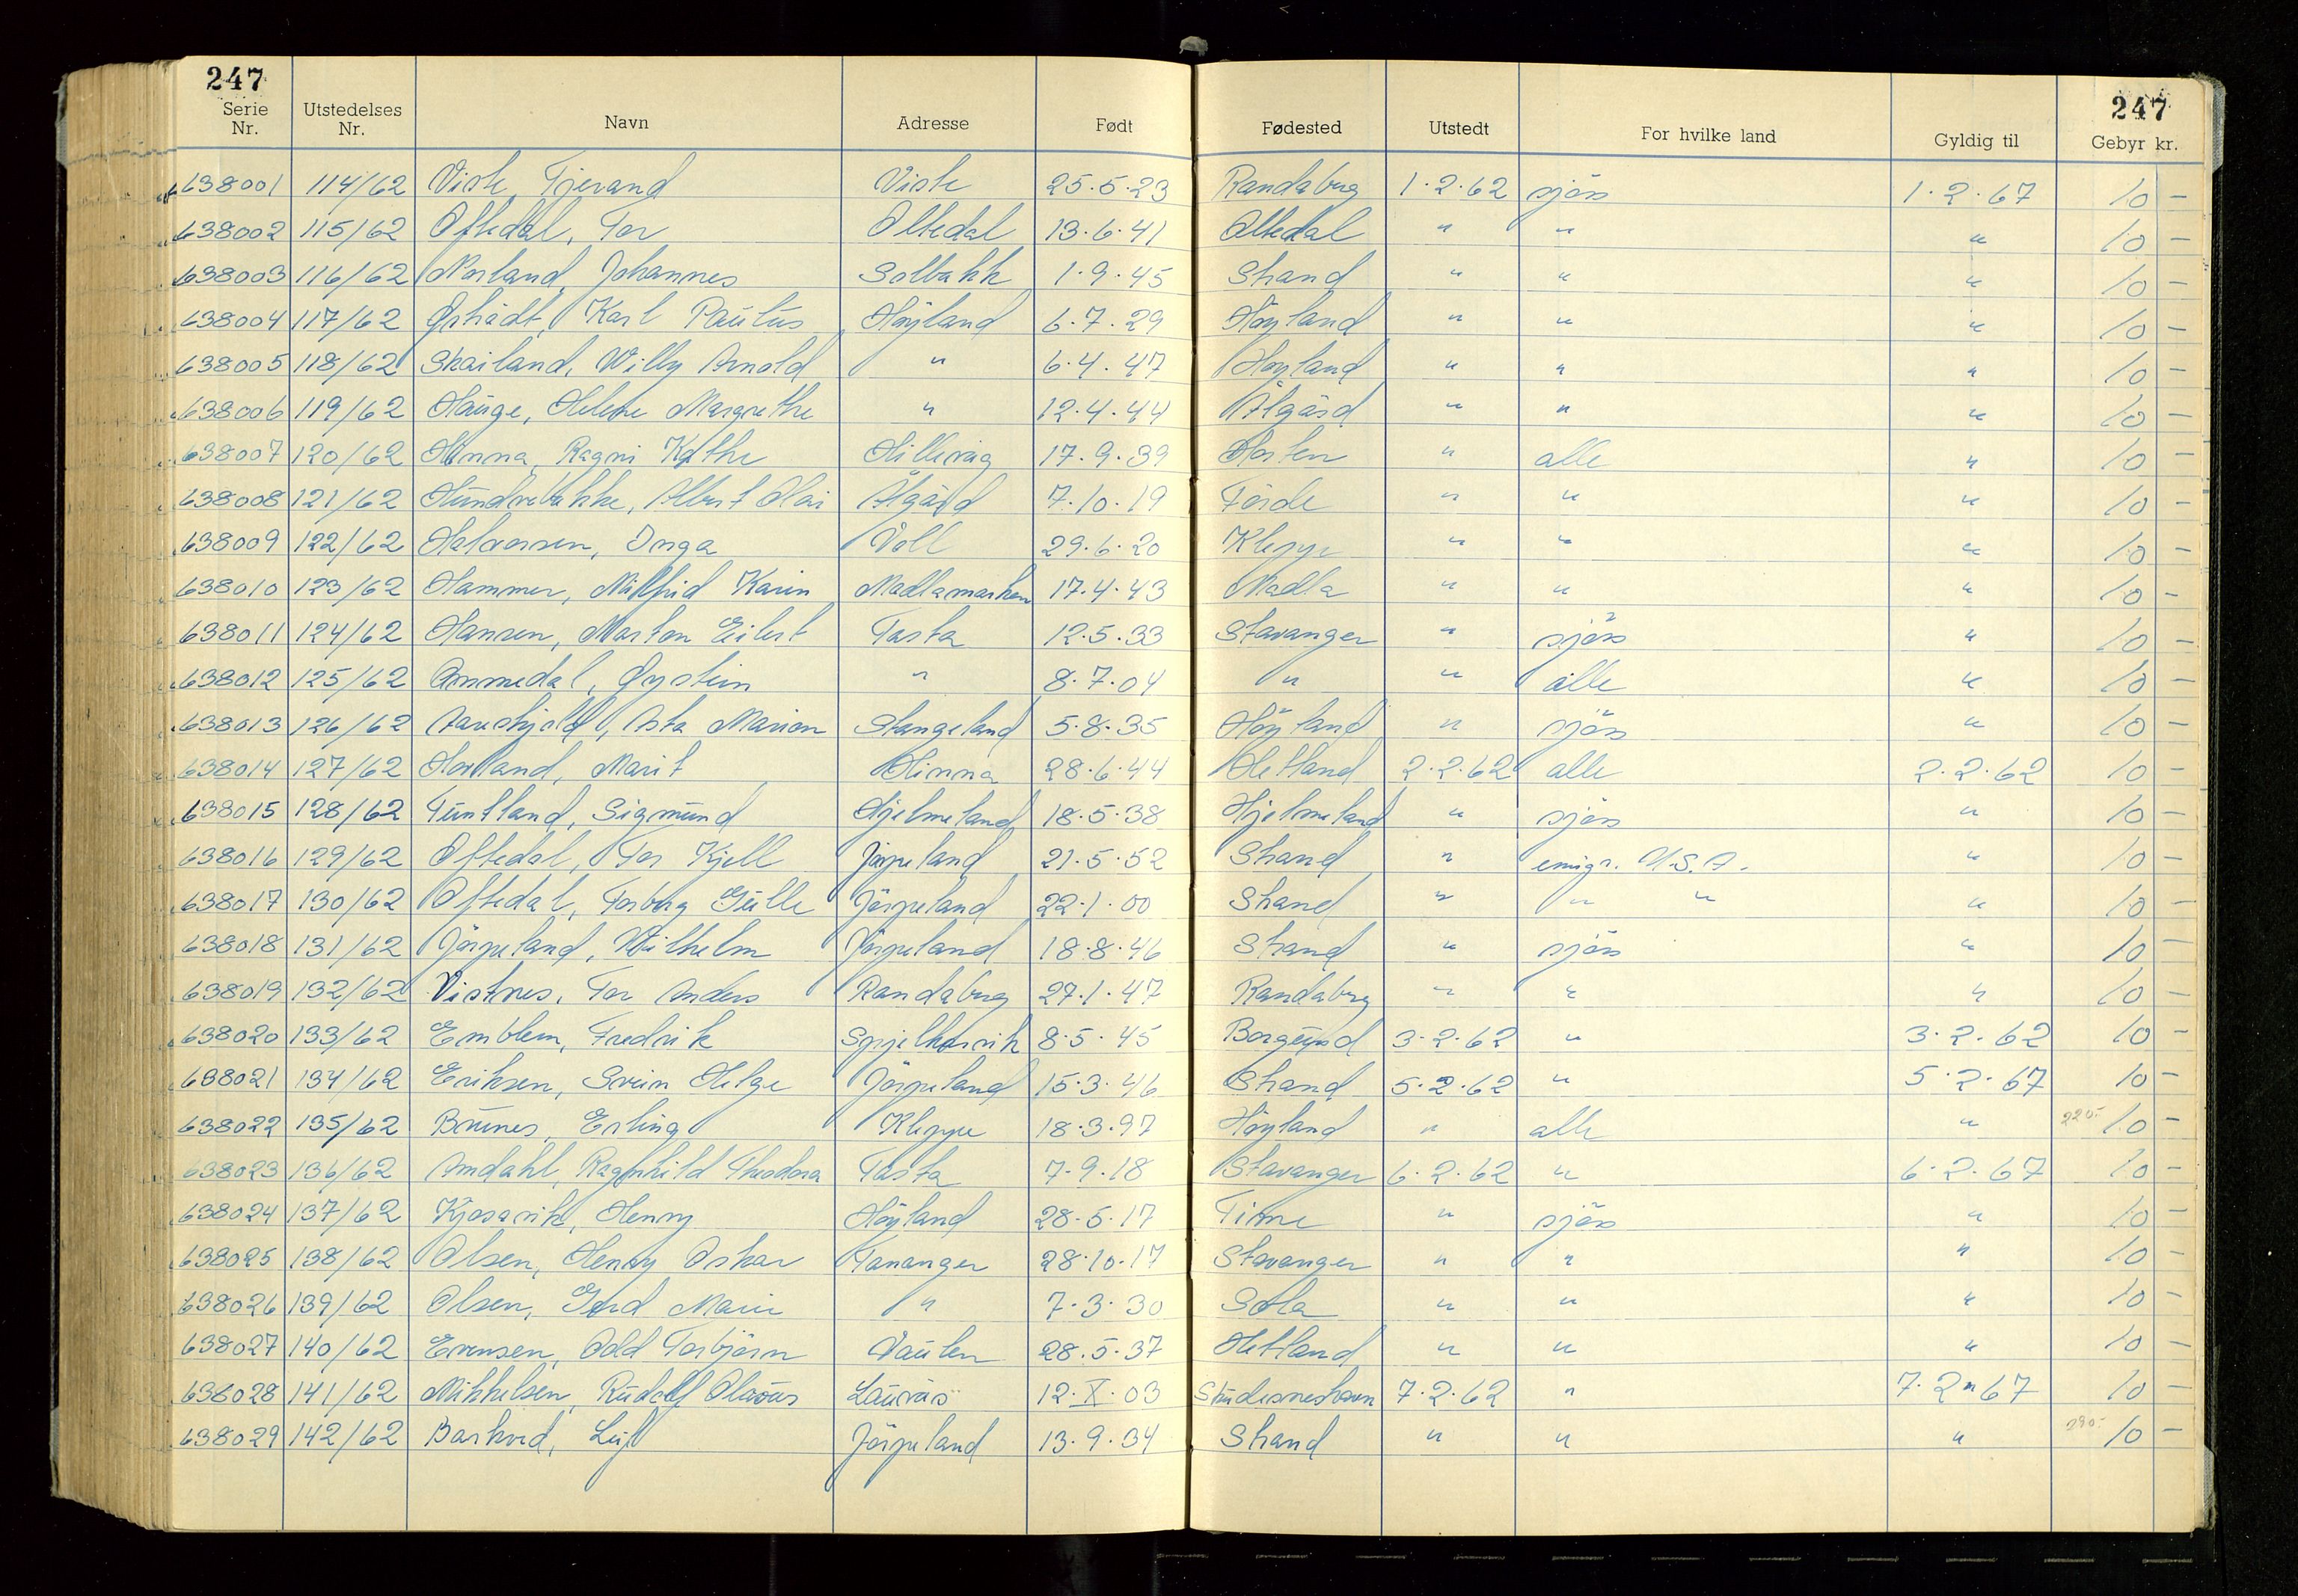 247 247
Serie Nr. Utstedelses Nr. Navn Adresse Født Fødested Utstedt For hvilke land Gyldig til Gebyr kr.
638001 114/62 Viste, Tjerand Viste 25.5.23 Randaberg 1.2.62 sjöss 1.2.67 10 -
638002 115/62 Oftedal, Tor Oltedal 13.6.41 Oltedal " " " 10 -
638003 116/62 Norland, Johannes Solbakk 1.9.45 Strand " " " 10 -
638004 117/62 Karl Paulus Höyland 6.7.29 Höyland " " " 10 -
638005 118/62 Skailand, Willy Arnold " 6.4.47 Höyland " " " 10 -
638006 119/62 Hauge, Helene Margrethe " 12.4.44 Ålgård " " " 10 -
638007 120/62 Hinna, Ragni Käthe Hillevåg 17.9.39 Horten " alle " 10 -
638008 121/62 Hundvebakke, Albert Olai Ålgård 7.10.19 Förde " " " 10 -
638009 122/62 Halvorsen, Inga Voll 29.6.20 Kleppe " " " 10 -
638010 123/62 Hammer, Milfrid Karin Madlamarken 17.4.43 Madla " " " 10 -
638011 124/62 Hansen, Morton Eilert Tasta 12.5.33 Stavanger " sjöss " 10 -
638012 125/62 Ommedal, Øystein " 8.7.04 " " alle " 10 -
638013 126/62 Asta Marion Stangeland 5.8.35 Höyland " sjöss " 10 -
638014 127/62 Marit Hinna 28.6.44 Hetland 2.2.62 alle 2.2.62 10 -
638015 128/62 Tuntland, Sigmund Hjelmeland 18.5.38 Hjelmeland " sjöss " 10 -
638016 129/62 Oftedal, Tor Kjell Jörpeland 21.5.52 Strand " emigr. U.S.A. " 10 -
638017 130/62 Oftedal, Torborg Gulle Jörpeland 22.1.00 Strand " " " " 10 -
638018 131/62 Jörpeland, Wilhelm Jörpeland 18.8.46 Strand " sjöss " 10 -
638019 132/62 Vistnes, Tor Anders Randaberg 27.1.47 Randaberg " " " 10 -
638020 133/62 Emblem, Fredrik Spjelkavik 8.5.45 Borgund 3.2.62 " 3.2.62 10 -
638021 134/62 Eriksen, Svein Helge Jörpeland 15.3.46 Strand 5.2.62 " 5.2.67 10 -
638022 135/62 Brunes, Erling Kleppe 18.3.97 Höyland " alle " 220.- 10 -
638023 136/62 Amdahl, Ragnhild Theodora Tasta 7.9.18 Stavanger 6.2.62 " 6.2.67 10 -
638024 137/62 Kjosavik, Henny Höyland 28.5.17 Time " sjöss " 10 -
638025 138/62 Olsen, Henry Oskar Tananger 28.10.17 Stavanger " " " 10 -
638026 139/62 Olsen, Gerd Marie " 7.3.30 Sola " " " 10 -
638027 140/62 Evensen, Odd Torbjörn Vaulen 28.5.37 Hetland " " " 10 -
638028 141/62 Mikkelsen, Rudolf Olavus Lauvås 12.X.03 Skudesneshavn 7.2.62 " 7.2.67 10 -
638029 142/62 Barkved, Leif Jörpeland 13.9.34 Strand " " " 280.- 10 -